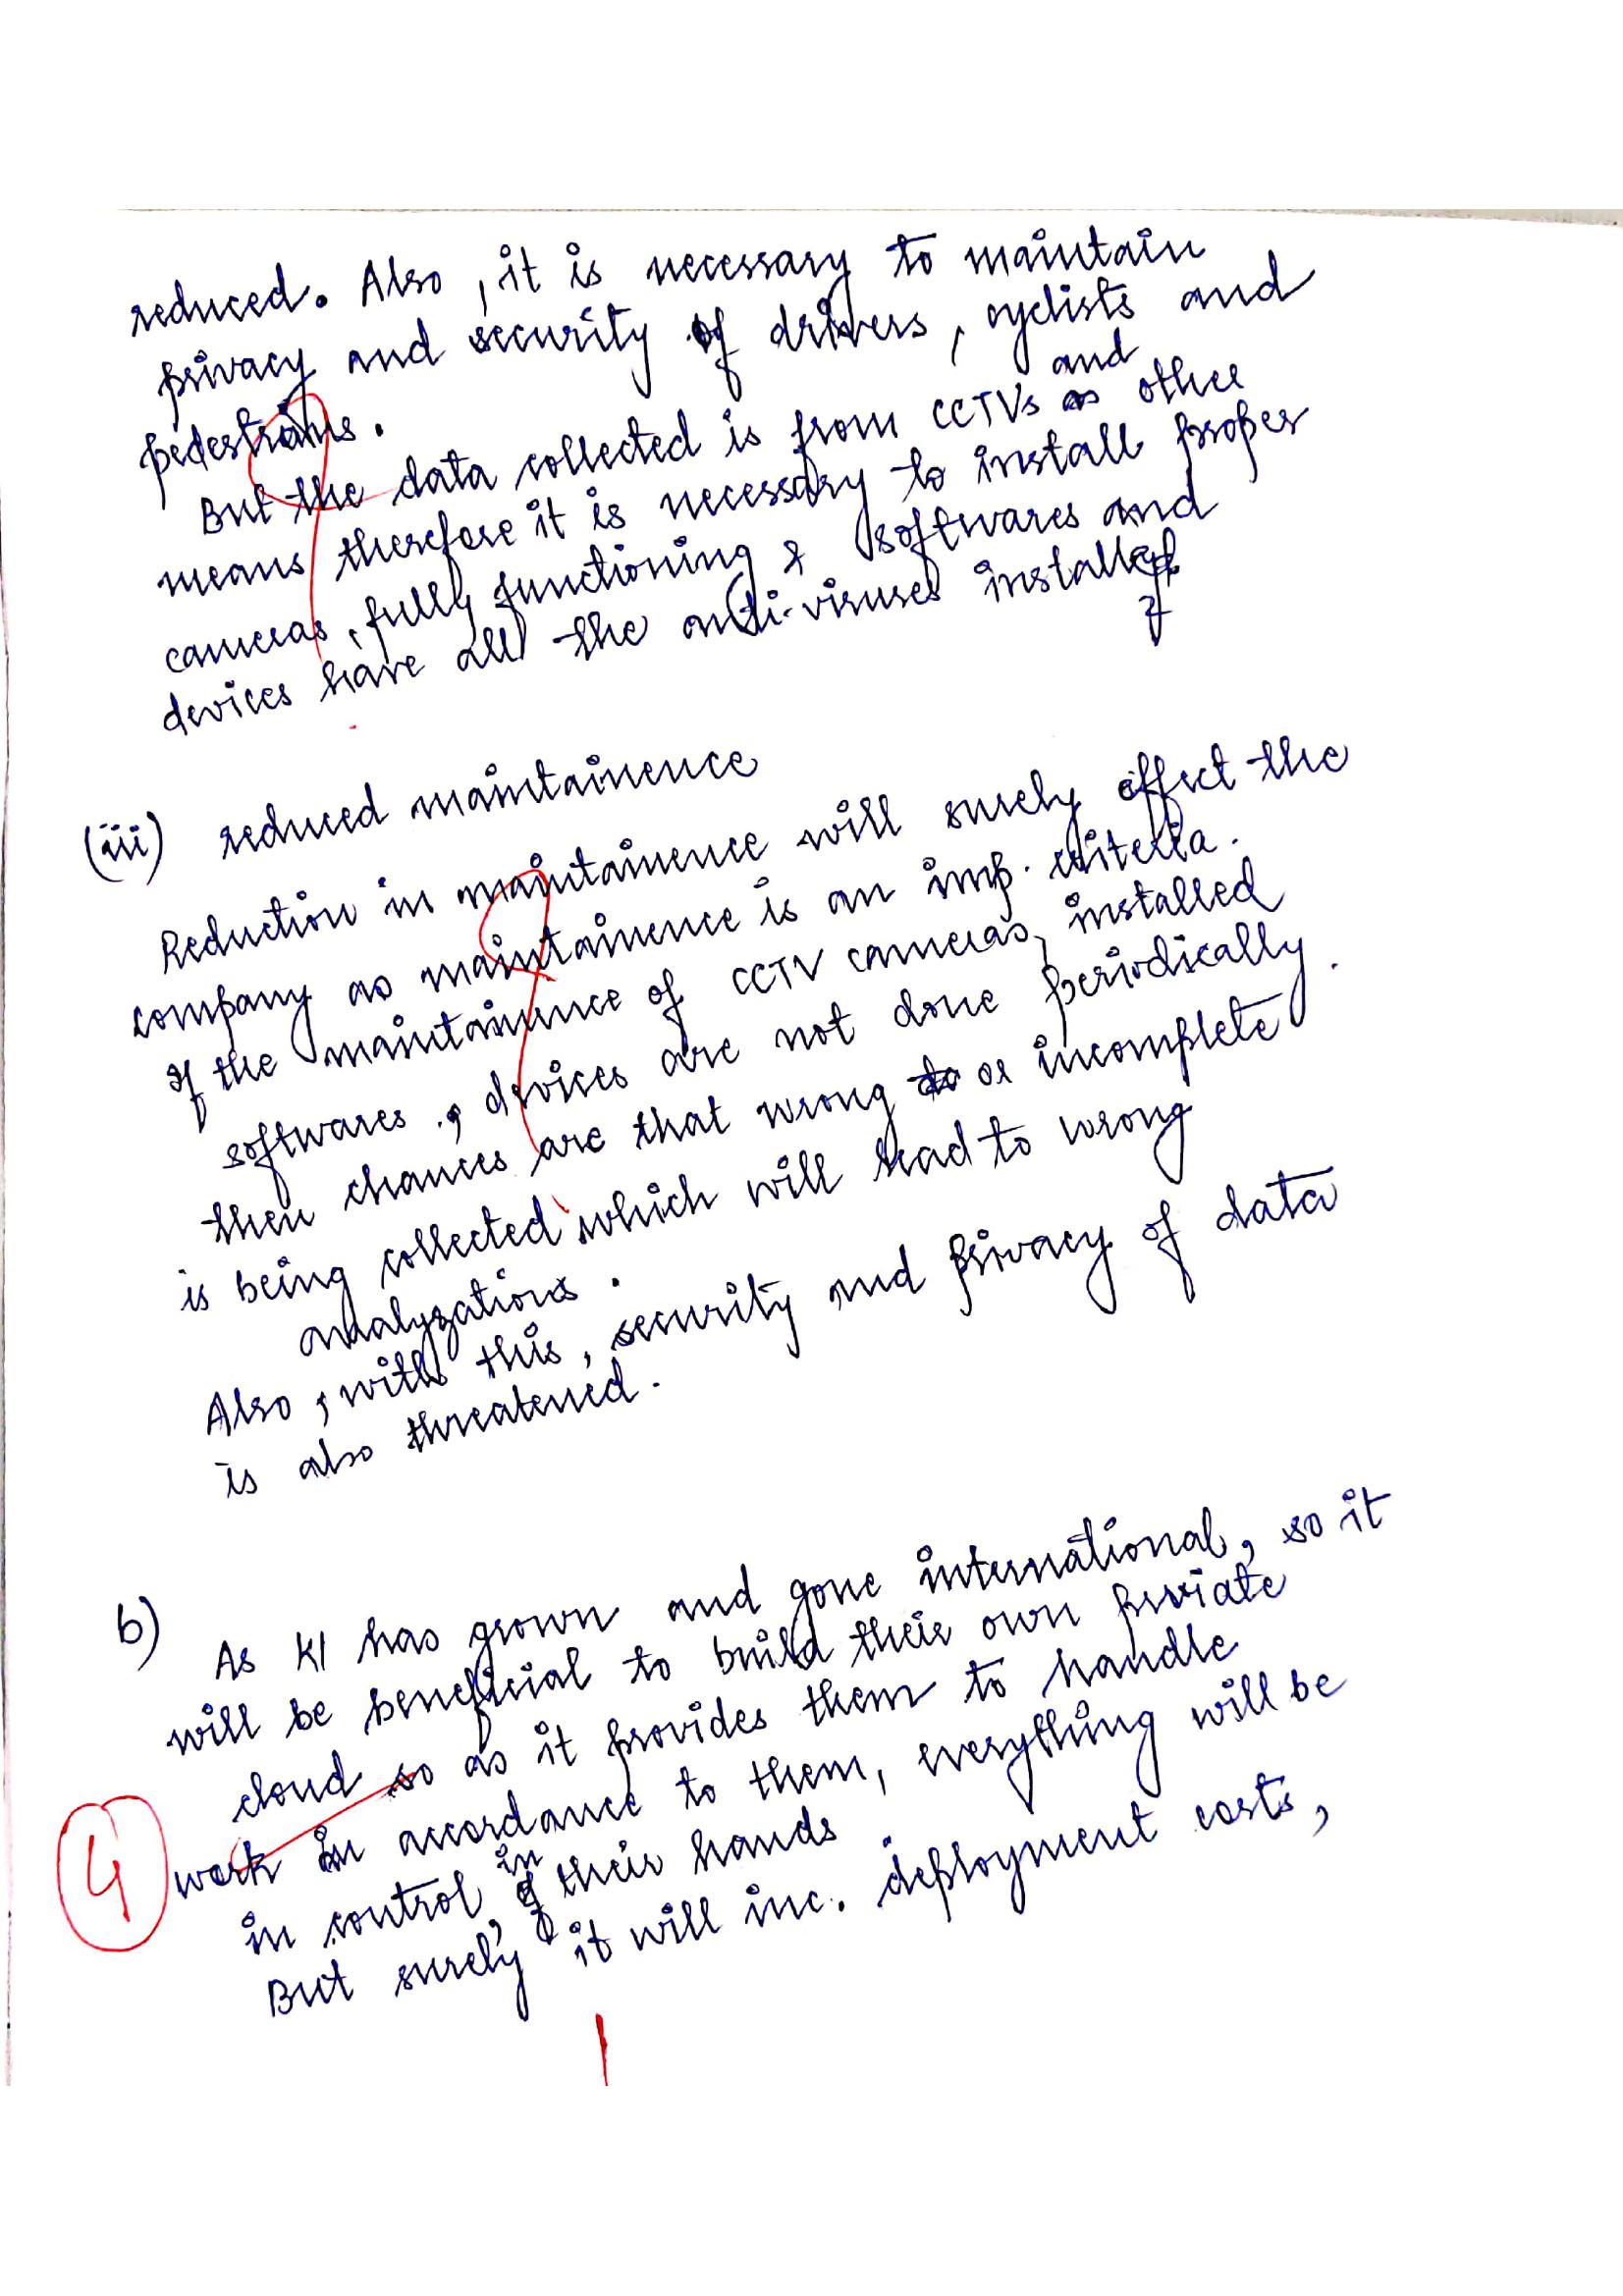 reduced. Also, it is necessary to maintain
privacy and security of drivers, cyclists and
pedestrians.
But the data collected is from CCTVs and other
means therefore it is necessary to install proper
cameras, fully functioning & softwares and
devices have all the anti-viruses installed
(iii) reduced maintainence
Reduction in maintainence will surely effect the
company as maintainence is an imp. criteria.
If the maintainence of CCTV cameras, installed
softwares, devices are not done periodically.
then chances are that wrong or incomplete
is being collected which will lead to wrong
analyzations.
Also, with this, security and privacy of data
is also threatened.
b) As KI has grown and gone international, so it
will be beneficial to build their own private
cloud so as it provides them to handle
4 work in accordance to them, everything will be
in control, in their hands
But surely it will inc. deployment costs,